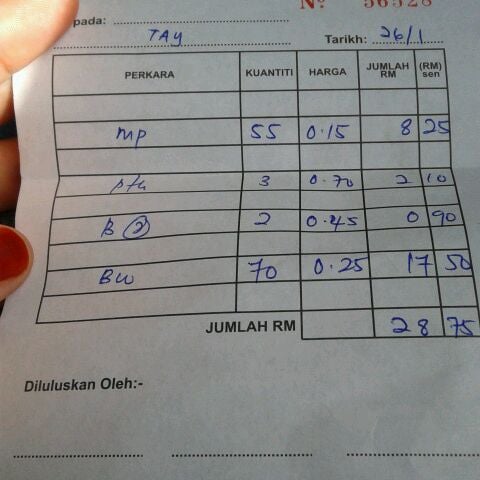 Nº 56528
pada:
TAY Tarikh: 26/1
PERKARA KUANTITI HARGA JUMLAH RM (RM) sen
mp 55 0.15 8 25
3 0.70 2 10
B (2) 2 0.45 0 90
BW 70 0.25 17 50
JUMLAH RM 28 75
Diluluskan Oleh:-